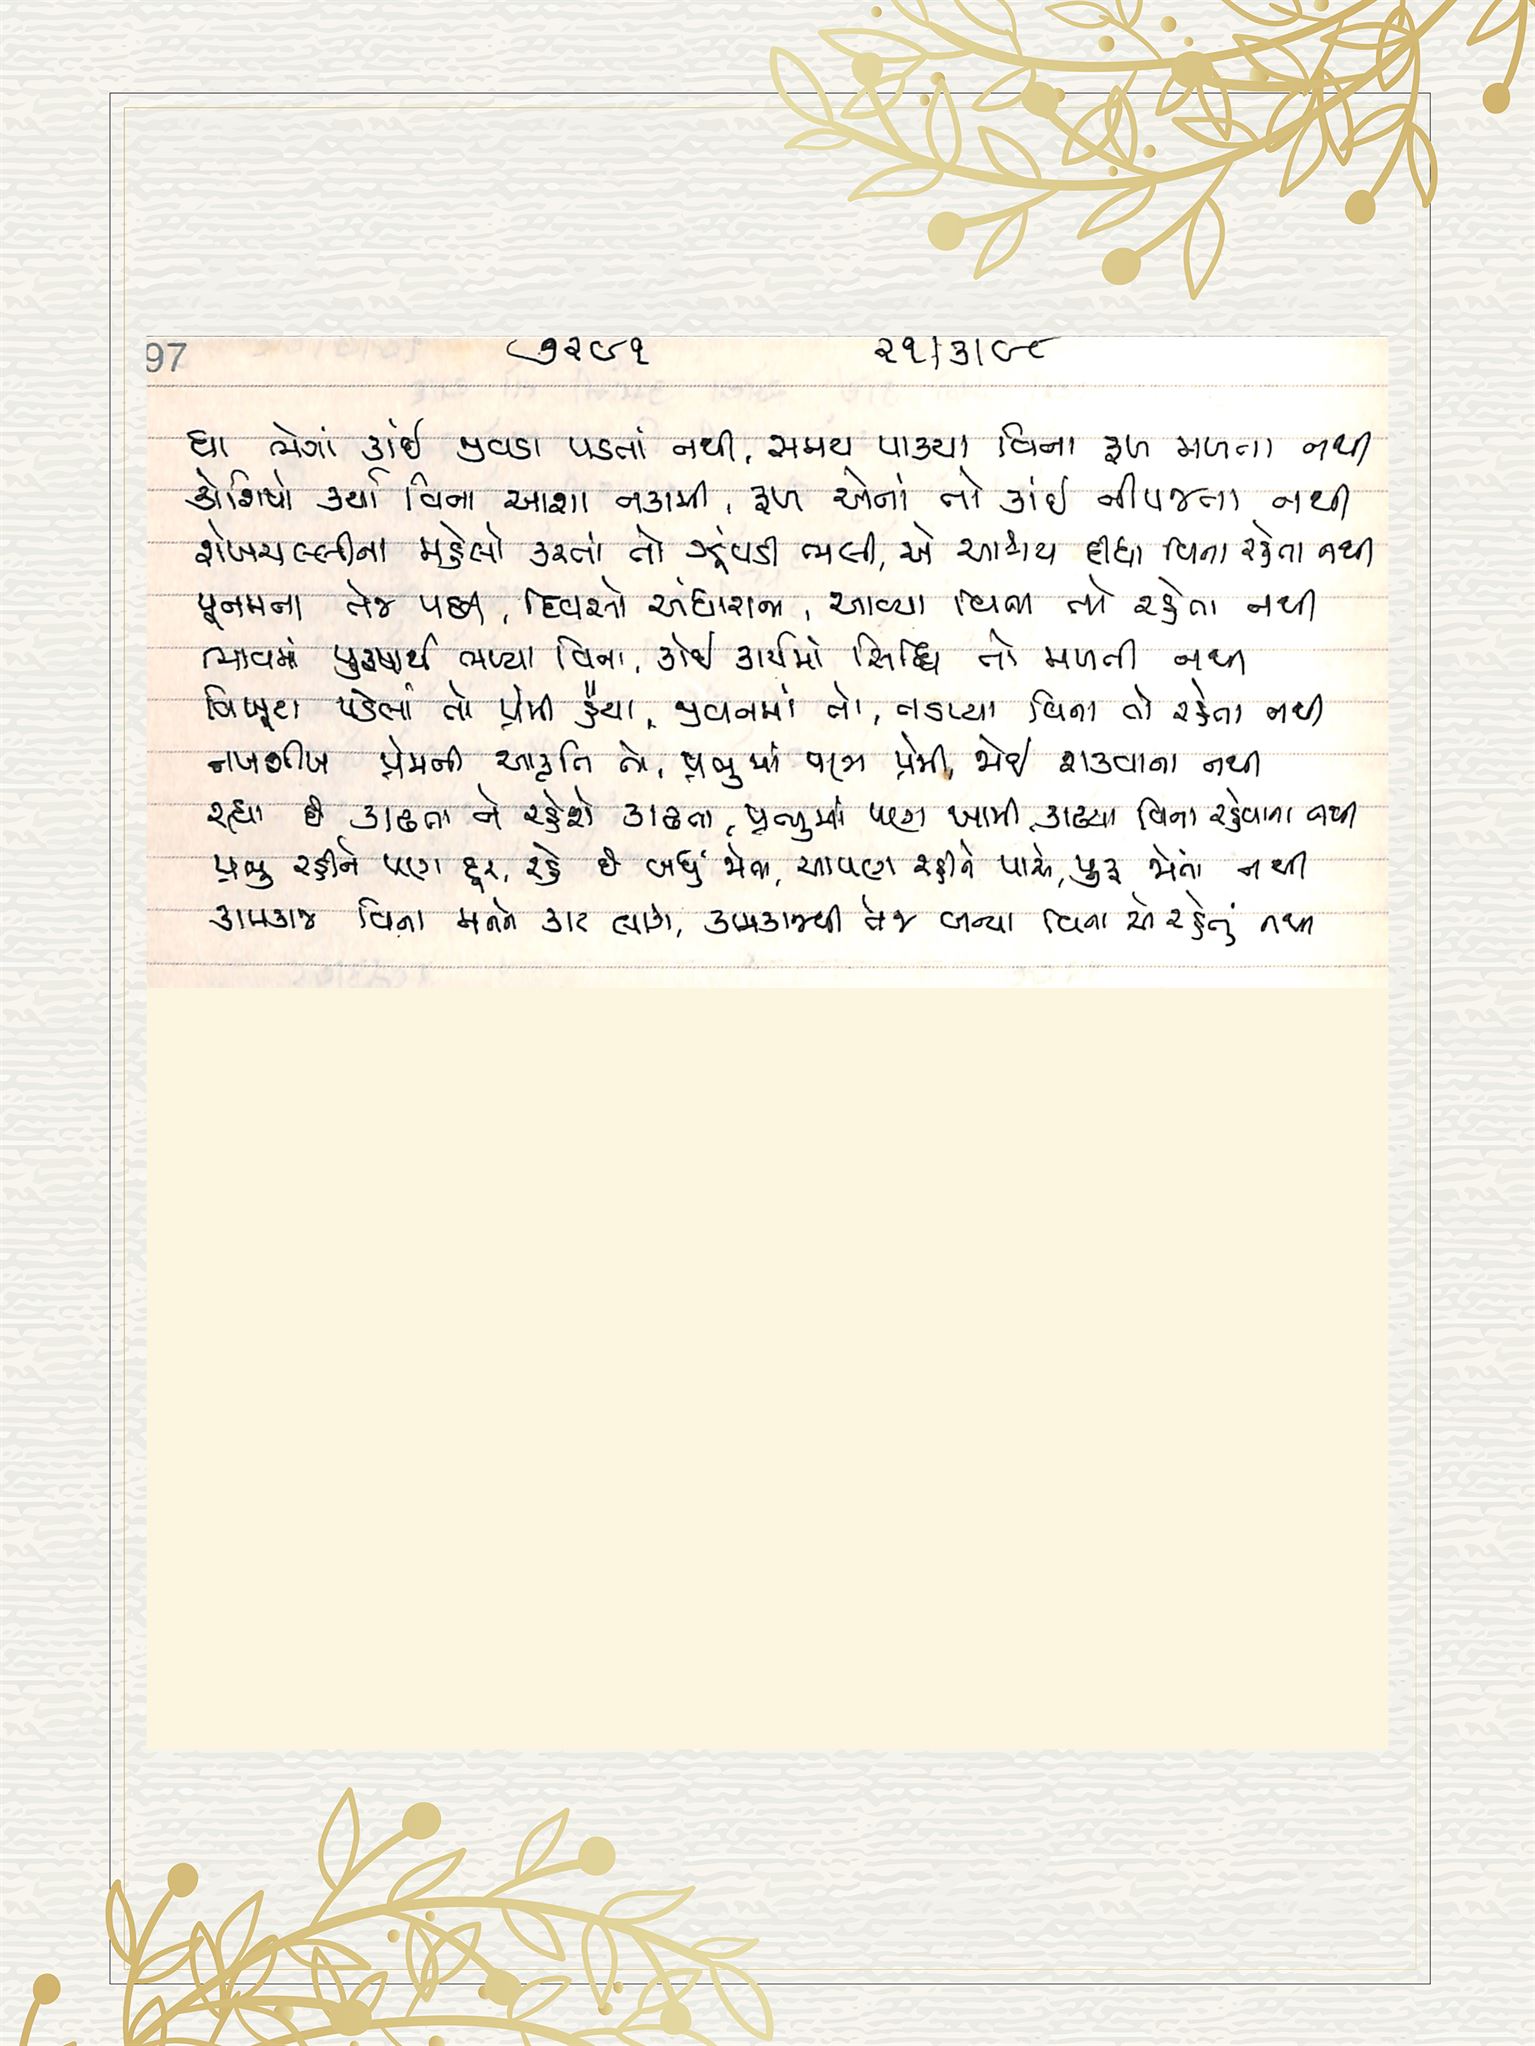 97 ૭૨૯૧ ૨૧/૩/૯૮
ઘા ભેગાં કાંઈ જુવડા પડતાં નથી, સમય પાક્યા વિના ફળ મળતા નથી
કોશિષો કર્યા વિના આશા નકામી, ફળ એનાં તો કાંઈ નીપજતા નથી
શેખચલ્લીના મહેલો કરતાં તો ઝૂંપડી ભલી, એ આશ્રય દીધા વિના રહેતા નથી
પૂનમના તેજ પછી, દિવસો અંધારાના, આવ્યા વિના તો રહેતા નથી
ભાવમાં પુરુષાર્થ ભળ્યા વિના, કોઈ કાર્યમાં સિદ્ધિ તો મળતી નથી
વિખૂટા પડેલાં તો પ્રેમી હૈયા, જીવનમાં તો, તડપ્યા વિના તો રહેતા નથી
નખશીખ પ્રેમની આકૃતિ તો, પ્રભુમાં પણ પ્રેમી, જોઈ શકવાના નથી
રહ્યા છે કાઢતા ને રહેશે કાઢતા, પ્રભુમાં પણ ખામી, કાઢ્યા વિના રહેવાના નથી
પ્રભુ રહીને પણ દૂર, રહે છે બધું જોતા, આપણે રહીને પાસે, પુરૂ જોતાં નથી
કામકાજ વિના મનને કાટ લાગે, કામકાજથી તેજ બન્યા વિના એ રહેતું નથી